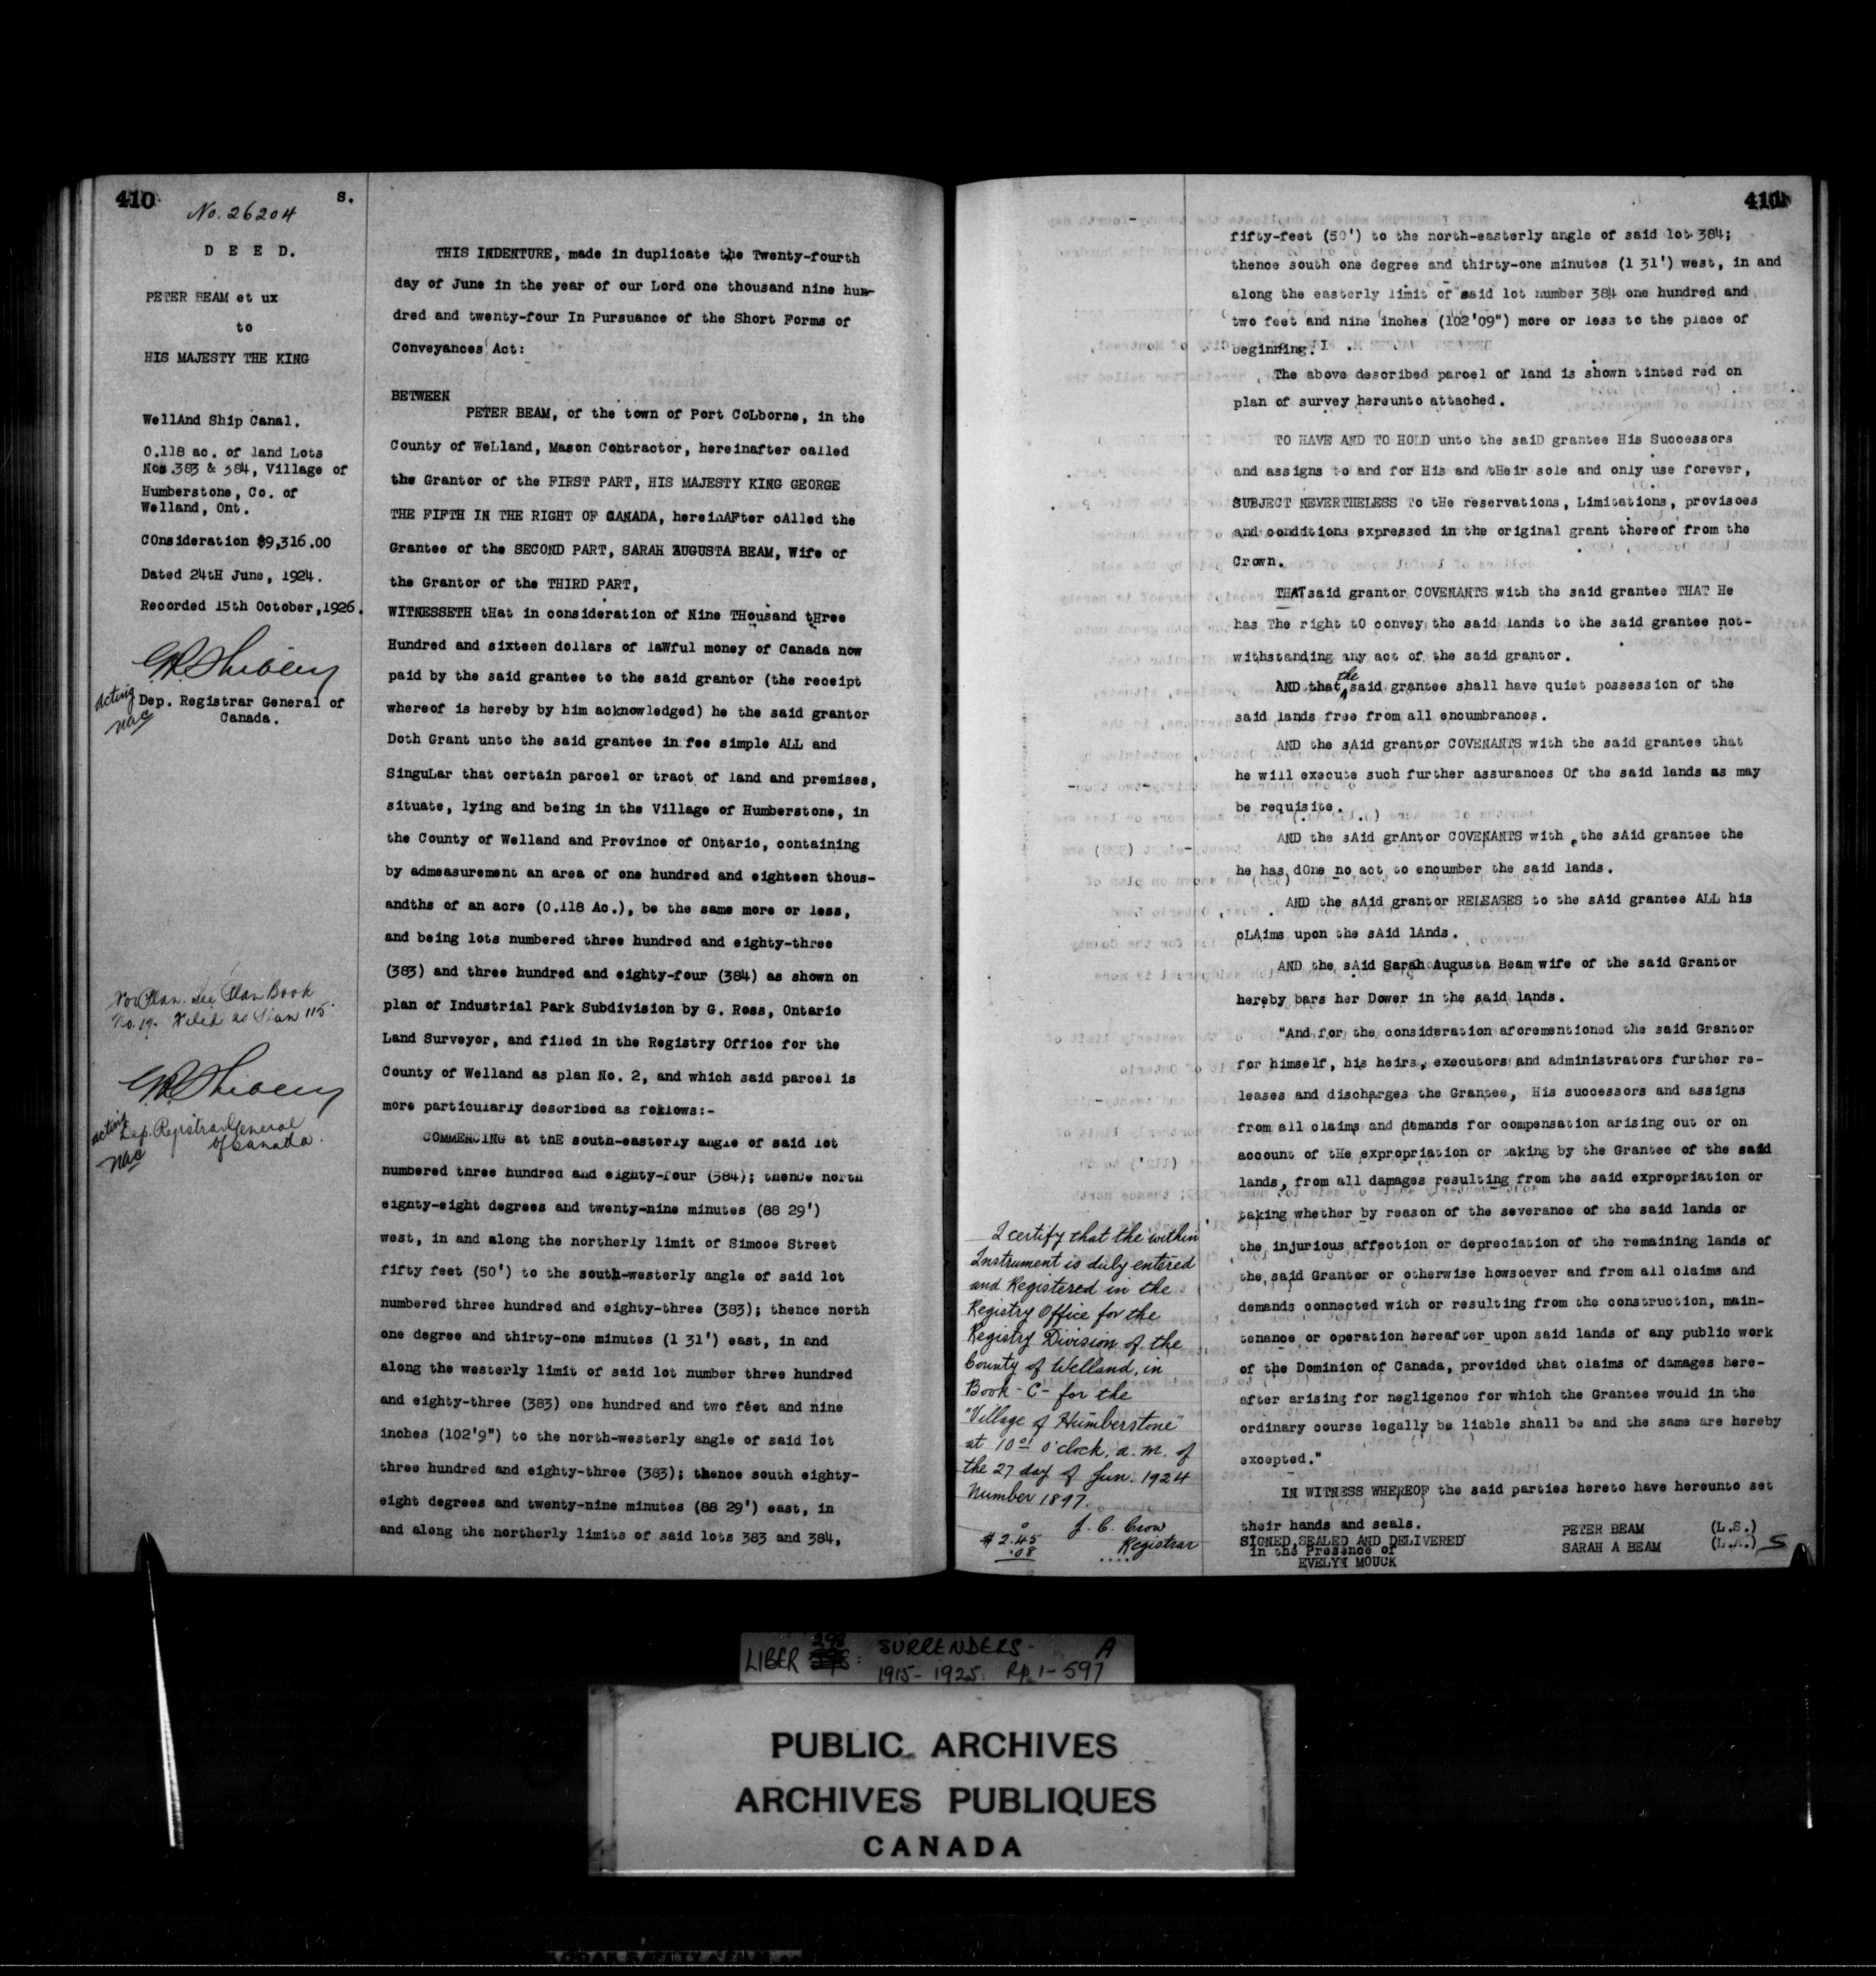 410
S.
No. 26204
D E E D.
PETER BEAM et ux
to
HIS MAJESTY THE KING
WellAnd Ship Canal.
0.118 ac. of land Lots
Nos.383 & 384, Village of
Humberstone, Co. of
Welland, Ont.
COnsideration $9,316.00
Dated 24tH June, 1924.
Recorded 15th October,1926.
Acting
Dep. Registrar General of
Canada.
For Plan. See Plan Book
No. 19. Filed as Plan 115.
acting
Dep. Registrar General
of Canada.
THIS INDENTURE, made in duplicate the Twenty-fourth
day of June in the year of our Lord one thousand nine hun-
dred and twenty-four In Pursuance of the Short Forms of
Conveyances Act:
BETWEEN
PETER BEAM, of the town of Port CoLborne, in the
County of WeLland, Mason Contractor, hereinafter called
the Grantor of the FIRST PART, HIS MAJESTY KING GEORGE
THE FIFTH IN THE RIGHT OF CANADA, hereinAFter cAlled the
Grantee of the SECOND PART, SARAH AUGUSTA BEAM, Wife of
the Grantor of the THIRD PART,
WITNESSETH tHat in consideration of Nine THousand tHree
Hundred and sixteen dollars of laWful money of Canada now
paid by the said grantee to the said grantor (the receipt
whereof is hereby by him acknowledged) he the said grantor
Doth Grant unto the said grantee in fee simple ALL and
SinguLar that certain parcel or tract of land and premises,
situate, lying and being in the Village of Humberstone, in
the County of Welland and Province of Ontario, containing
by admeasurement an area of one hundred and eighteen thous-
andths of an acre (0.118 Ac.), be the same more or less,
and being lots numbered three hundred and eighty-three
(383) and three hundred and eighty-four (384) as shown on
plan of Industrial Park Subdivision by G. Ross, Ontario
Land Surveyor, and filed in the Registry Office for the
County of Welland as plan No. 2, and which said parcel is
more particularly described as follows:-
COMMENCING at thE south-easterly angle of said lot
numbered three hundred and eighty-four (384); thence north
eighty-eight degrees and twenty-nine minutes (88 29')
west, in and along the northerly limit of Simcoe Street
fifty feet (50') to the south-westerly angle of said lot
numbered three hundred and eighty-three (383); thence north
one degree and thirty-one minutes (1 31') east, in and
along the westerly limit of said lot number three hundred
and eighty-three (383) one hundred and two feet and nine
inches (102'9") to the north-westerly angle of said lot
three hundred and eighty-three (383); thence south eighty-
eight degrees and twenty-nine minutes (88 29') east, in
and along the northerly limits of said lots 383 and 384,
411
fifty-feet (50') to the north-easterly angle of said lot 384;
thence south one degree and thirty-one minutes (1 31') west, in and
along the easterly limit of said lot number 384 one hundred and
two feet and nine inches (102'09") more or less to the place of
beginning.
The above described parcel of land is shown tinted red on
plan of survey hereunto attached.
TO HAVE AND TO HOLD unto the saiD grantee His Successors
and assigns to and for His and tHeir sole and only use forever,
SUBJECT NEVERTHELESS To tHe reservations, Limitations, provisoes
and conditions expressed in the original grant thereof from the
Crown.
THAT said grantor COVENANTS with the said grantee THAT He
has The right tO convey the said lands to the said grantee not-
withstanding any act of the said grantor.
AND that the said grantee shall have quiet possession of the
said lands free from all encumbrances.
AND the sAid grantor COVENANTS with the said grantee that
he will execute such further assurances Of the said lands as may
be requisite.
AND the sAid grAntor COVENANTS with the sAid grantee the
he has dOne no act to encumber the said lands.
AND the sAid grantor RELEASES to the sAid grantee ALL his
cLAims upon the sAid lAnds.
AND the sAid Sarah Augusta Beam wife of the said Grantor
hereby bars her Dower in the said lands.
"And for the consideration aforementioned the said Grantor
for himself, his heirs, executors and administrators further re-
leases and discharges the Grantee, His successors and assigns
from all claims and demands for compensation arising out or on
account of tHe expropriation or taking by the Grantee of the said
lands, from all damages resulting from the said expropriation or
taking whether by reason of the severance of the said lands or
the injurious affection or depreciation of the remaining lands of
the said Grantor or otherwise howsoever and from all claims and
demands connected with or resulting from the construction, main-
tenance or operation hereafter upon said lands of any public work
of the Dominion of Canada, provided that claims of damages here-
after arising for negligence for which the Grantee would in the
ordinary course legally be liable shall be and the same are hereby
excepted."
IN WITNESS WHEREOF the said parties hereto have hereunto set
their hands and seals.
SIGNED,SEALED AND DELIVERED
in the Presence of
EVELYN MOUCK
PETER BEAM (L.S.)
SARAH A BEAM (L.A.) S
I certify that the within
Instrument is duly entered
and Registered in the
Registry Office for the
Registry Division of the
County of Welland, in
Book - C - for the
"Village of Humberstone"
at 10 o'clock, a.m. of
the 27 day of Jun. 1924
Number 1897.
J. C. Crow
Registrar
$ 2.45
.08
LIBER 298 : SURRENDERS - A
1915 - 1925. Pp 1 - 597
PUBLIC ARCHIVES
ARCHIVES PUBLIQUES
CANADA